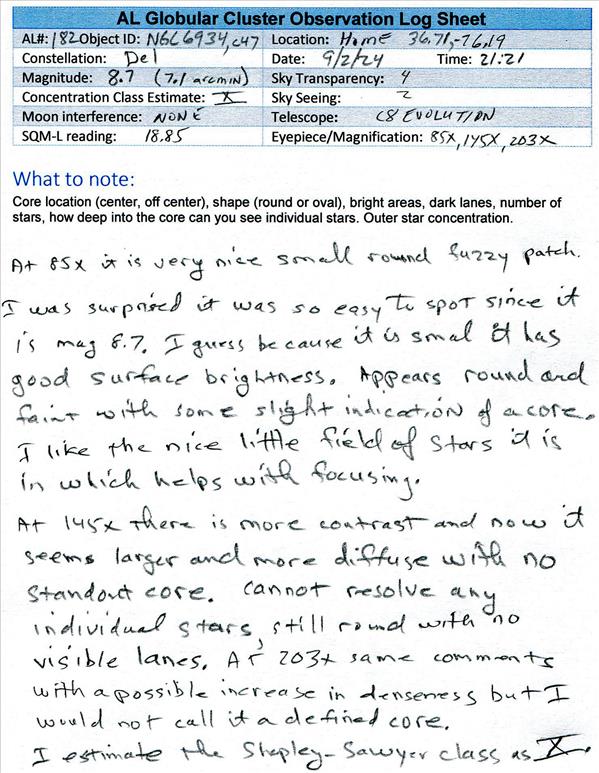 AL Globular Cluster Observation Log Sheet
AL#: 182 Object ID: NGC6934, C47 Location: Home 36.71,-76.19
Constellation: Del Date: 9/2/24 Time: 21:21
Magnitude: 8.7 (7.1 arcmin) Sky Transparency: 4
Concentration Class Estimate: X Sky Seeing: 2
Moon interference: NONE Telescope: C8 EVOLUTION
SQM-L reading: 18.85 Eyepiece/Magnification: 85X, 145X, 203X
What to note:
Core location (center, off center), shape (round or oval), bright areas, dark lanes, number of
stars, how deep into the core can you see individual stars. Outer star concentration.
At 85x it is very nice small round fuzzy patch.
I was surprised it was so easy to spot since it
is mag 8.7. I guess because it is smal it has
good surface brightness. Appears round and
faint with some slight indication of a core.
I like the nice little field of stars it is
in which helps with focusing.
At 145x there is more contrast and now it
seems larger and more diffuse with no
standout core. Cannot resolve any
individual stars, still round with no
visible lanes. At 203x same comments
with a possible increase in denseness but I
would not call it a defined core.
I estimate the Shapley-Sawyer class as X.